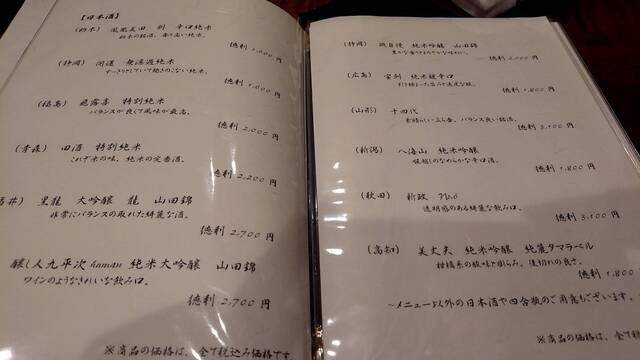 【日本酒】
(栃木) 鳳凰美田 剱 辛口純米
栃木の銘酒、香り高い純米。
徳利 1,600 円
(静岡) 開運 無濾過純米
すっきりとしていて飽きのこない純米。
徳利 1,600 円
(福島) 飛露喜 特別純米
バランスが良くて風味が最高。
徳利 2,000 円
(青森) 田酒 特別純米
これぞ米の味、純米の定番酒。
徳利 2,200 円
井) 黒龍 大吟醸 龍 山田錦
非常にバランスの取れた綺麗な酒。
徳利 2,700 円
醸し人九平次 human 純米大吟醸 山田錦
ワインのようなきれいな飲み口。
徳利 2,700 円
※商品の価格は、全て税込み価格です
(静岡) 磯自慢 純米吟醸 山田錦
2,000 円
(広島) 宝剣 純米超辛口
徳利 1,800 円
(山形) 十四代
素晴らしい立ち香、バランス良い銘酒。
徳利 3,100 円
(新潟) 八海山 純米吟醸
喉越しのなめらかな辛口酒。
徳利 1,800 円
(秋田) 新政 No.6
透明感のある綺麗な飲み口。
徳利 3,100 円
(高知) 美丈夫 純米吟醸 純麗タマラベル
柑橘系の酸味と膨らみ、後切れの良さ。
徳利 1,800
~メニュー以外の日本酒や四合瓶のご用意もございます。
※商品の価格は、全て税